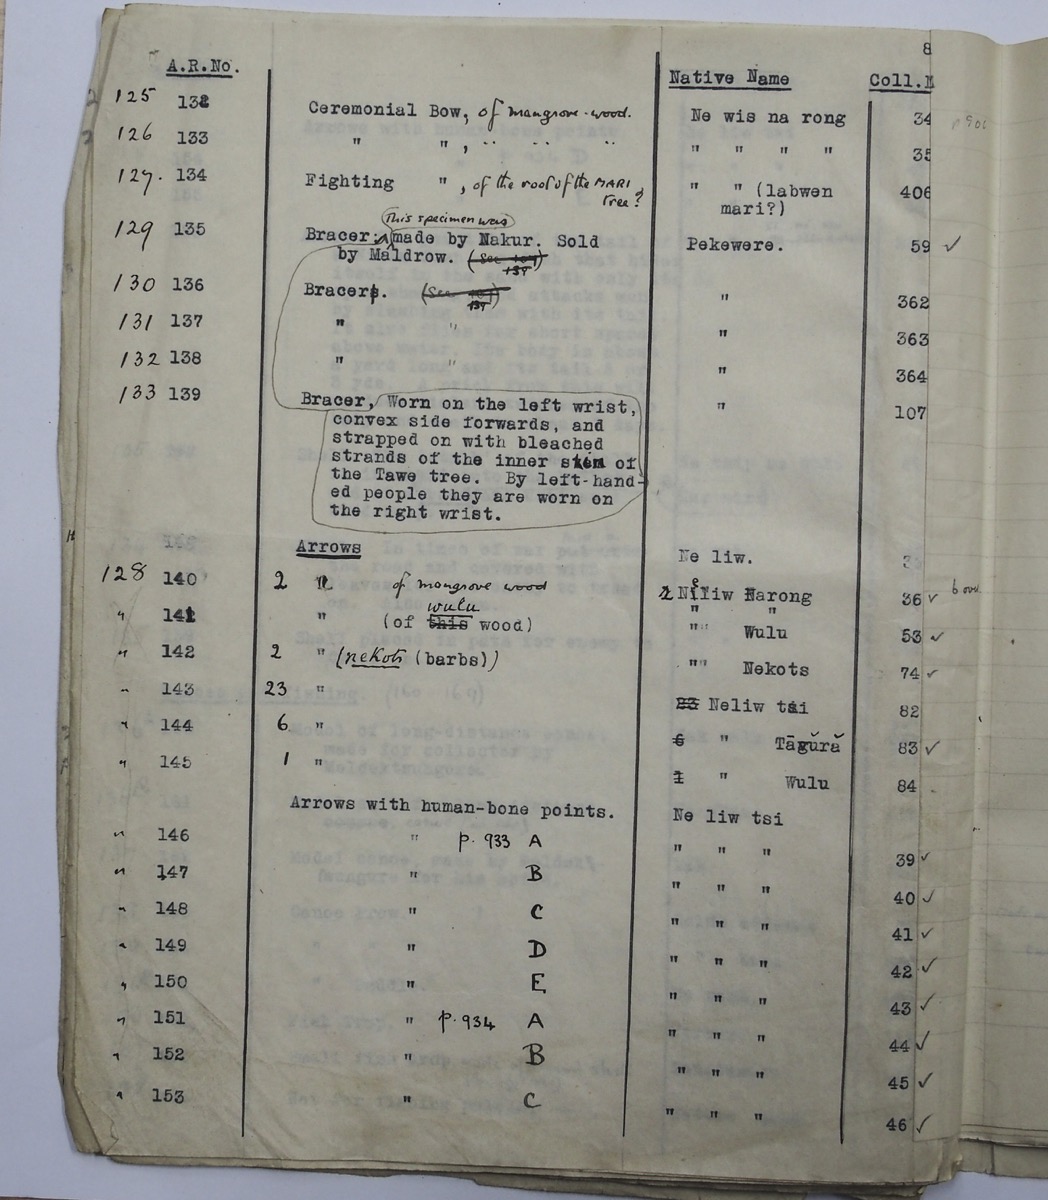 8
A.R.No. Native Name Coll.
125 132 Ceremonial Bow, of mangrove-wood. Ne wis na rong 34
126 133 " ", " " " " " " " 35
127. 134 Fighting ", of the root of the MARI tree? " " (labwen mari?) 406
This specimen was
129 135 Bracer; made by Nakur. Sold Pekewere. 59 ✓
by Maldrow. (See 107
137)
130 136 Bracer. (See 107 " 362
137)
131 137 " " " 363
132 138 " " " 364
133 139 Bracer, Worn on the left wrist, " 107
convex side forwards, and
strapped on with bleached
strands of the inner skin of
the Tawe tree. By left-hand-
ed people they are worn on
the right wrist.
Arrows Ne liw.
128 140 2 " of mangrove wood 2 Neliw Narong 36 ✓ 6 over
" "
wulu
" 141 " (of this wood) "" Wulu 53 ✓
" 142 2 " (nekots (barbs)) "" Nekots 74 ✓
" 143 23 " 23 Neliw tsi 82
" 144 6 " 6 " Tāgŭră 83 ✓
" 145 1 " 1 " Wulu 84
Arrows with human-bone points. Ne liw tsi
" 146 " p. 933 A " " " 39 ✓
" 147 " B " " " 40 ✓
" 148 " C " " " 41 ✓
" 149 " D " " " 42 ✓
" 150 " E " " " 43 ✓
" 151 " p. 934 A " " " 44 ✓
" 152 " B " " " 45 ✓
" 153 " C " " " 46 ✓